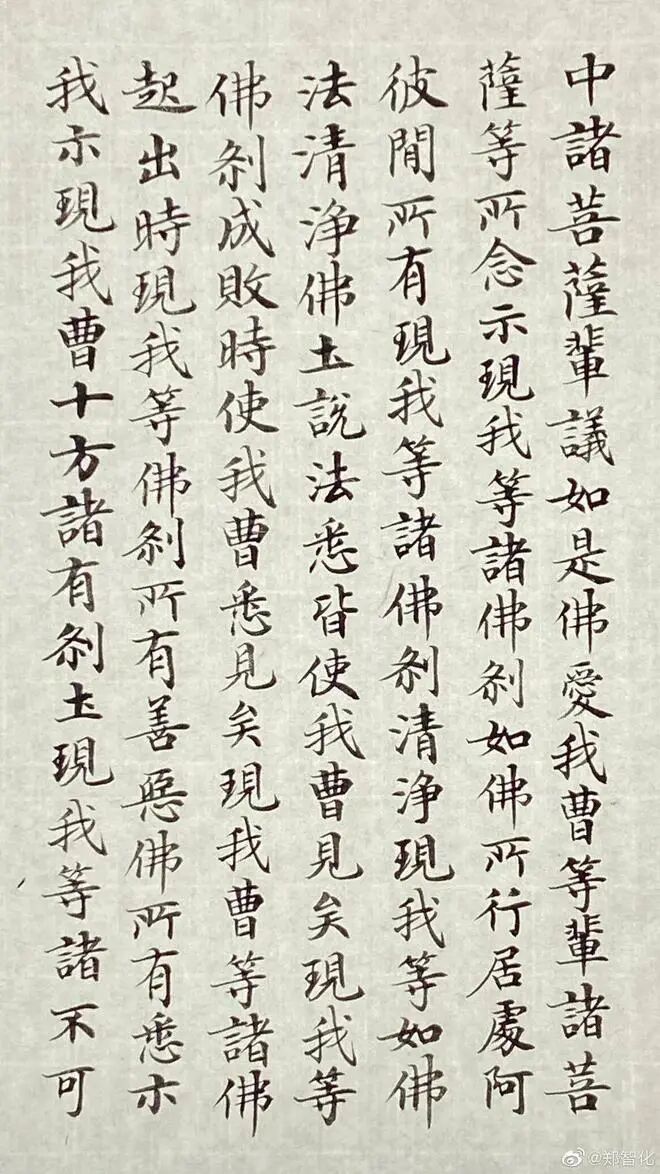 中諸菩薩輩議如是佛愛我曹等輩諸菩
薩等所念示現我等諸佛刹如佛所行居處阿
彼閒所有現我等諸佛刹清淨現我等如佛
法清淨佛土說法悉皆使我曹見矣現我等
佛刹成敗時使我曹悉見矣現我曹等諸佛
起出時現我等佛刹所有善惡佛所有悉示
我示現我曹十方諸有刹土現我等諸不可
@郑智化